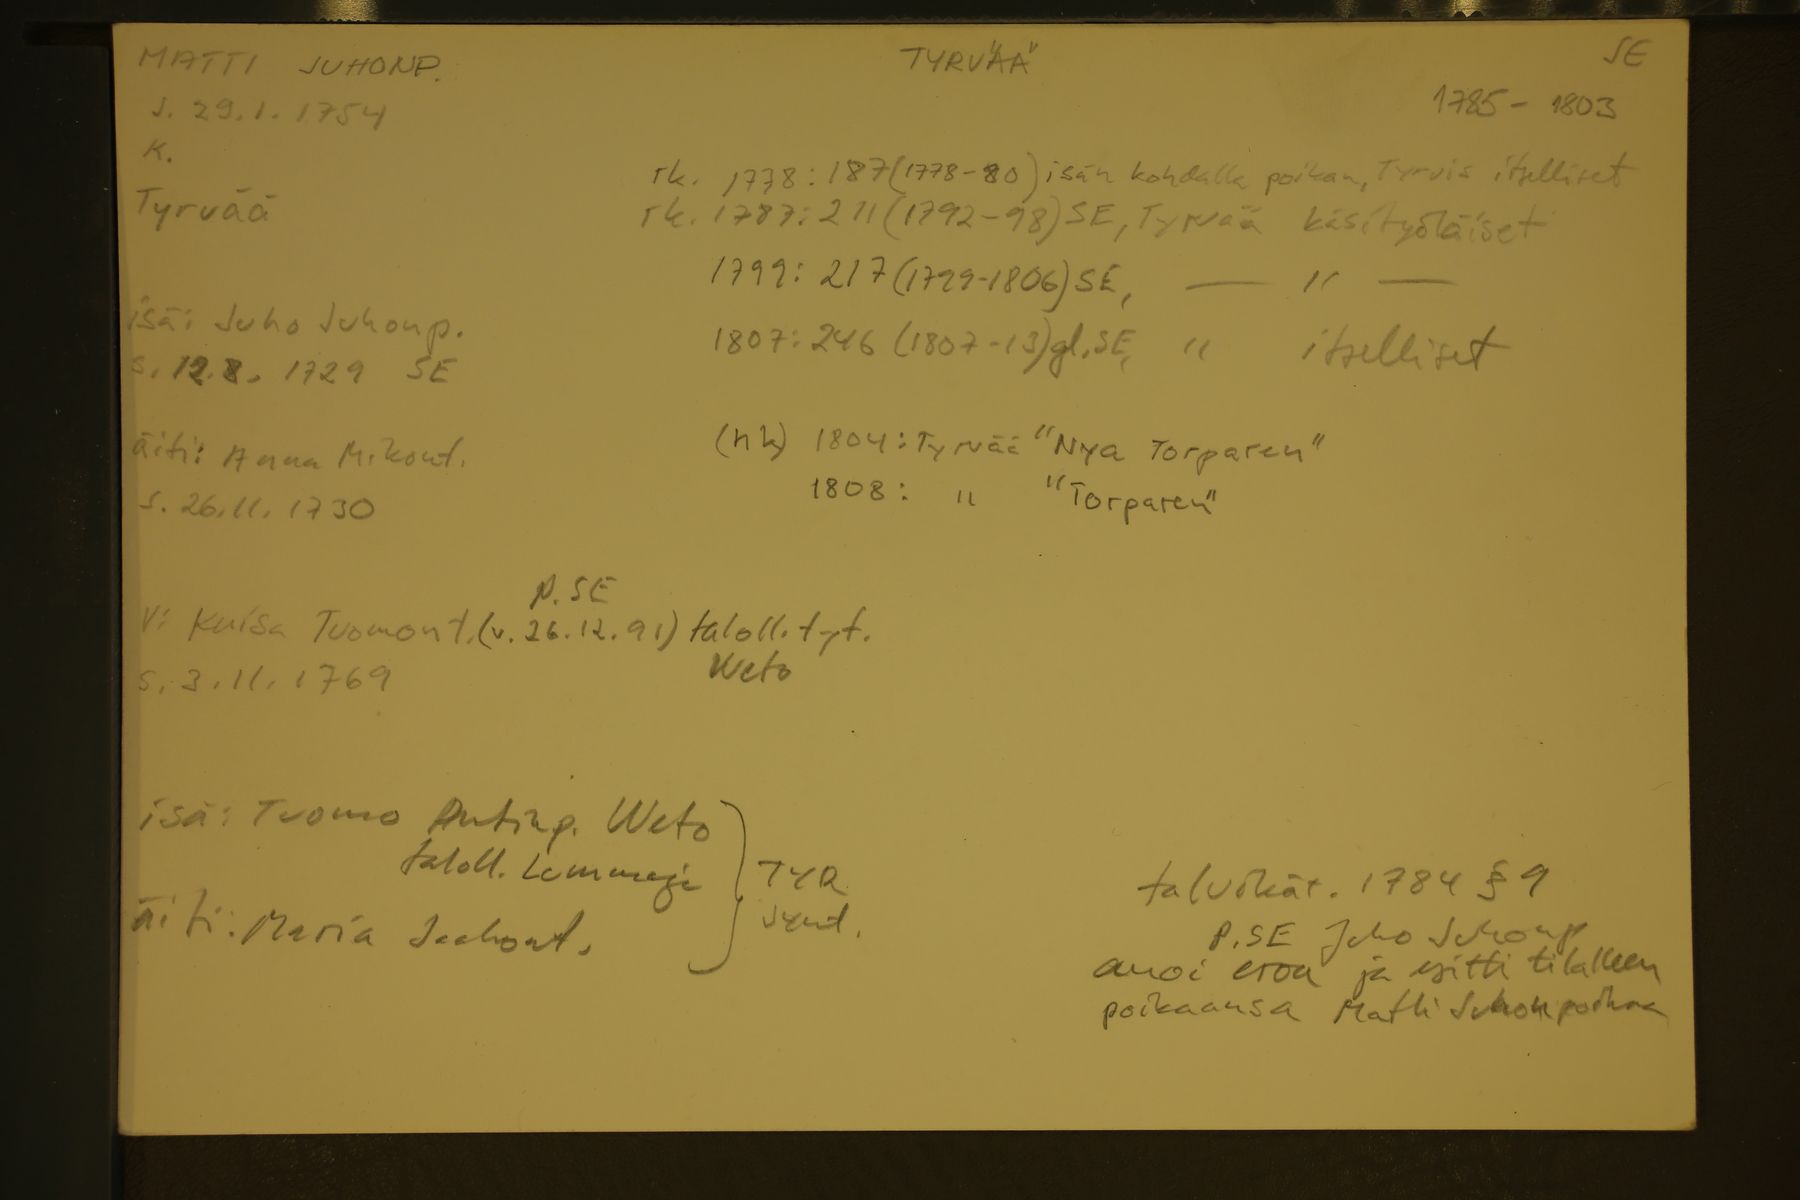 MATTI JUHONP. TYRVÄÄ SE
s. 29.1.1754 1785 - 1803
K.
Tyrvää
rk. 1778: 187 (1778-80) isän kohdalla poikan, Tyrvis itselliset
rk. 1787: 211 (1792-98) SE, Tyrvää käsityöläiset
1799: 217 (1799-1806) SE, — " —
isä: Juho Juhonp.
s. 12.8. 1729 SE
1807: 246 (1807-13) gl. SE, " itselliset
äiti: Anna Mikont.
s. 26.11. 1730
(hk) 1804: Tyrvää "Nya Torparen"
1808: " "Torparen"
p. SE
V: Kuisa Tuomont. (v. 26.12.91) taloll. tyt.
Weto
s. 3.11.1769
isä: Tuomo Antinp. Weto
taloll.
äiti: Maria Jaakont.
TYR
synt.
talvikär. 1784 § 9
P. SE Juho Juhonp
anoi eron ja esitti tilalleen
poikaansa Matti Juhonpoikaa